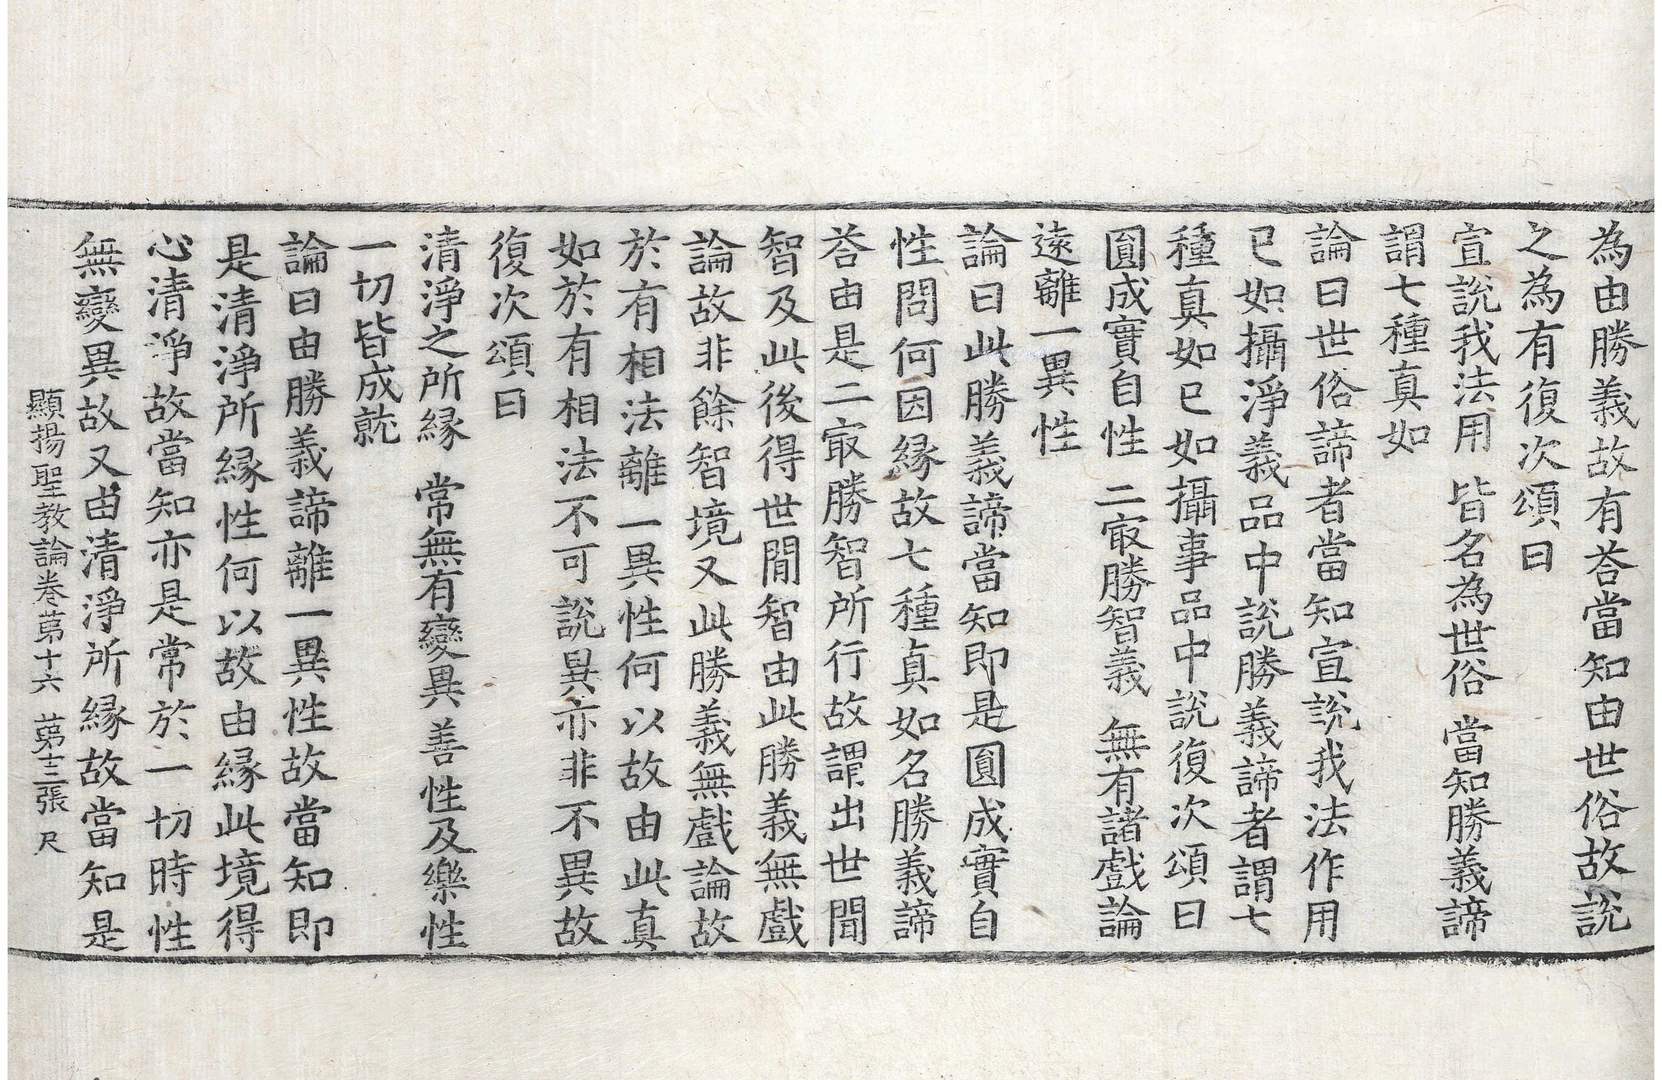 為由勝義故有荅當知由世俗故說
之為有復次頌曰
宣說我法用 皆名為世俗 當知勝義諦
謂七種真如
論曰世俗諦者當知宣說我法作用
已如攝淨義品中說勝義諦者謂七
種真如已如攝事品中說復次頌曰
圓成實自性 二㝡勝智義 無有諸戲論
遠離一異性
論曰此勝義諦當知即是圓成實自
性問何因緣故七種真如名勝義諦
荅由是二㝡勝智所行故謂出世間
智及此後得世間智由此勝義無戲
論故非餘智境又此勝義無戲論故
於有相法離一異性何以故由此真
如於有相法不可說異亦非不異故
復次頌曰
清淨之所緣 常無有變異 善性及樂性
一切皆成就
論曰由勝義諦離一異性故當知即
是清淨所緣性何以故由緣此境得
心清淨故當知亦是常於一切時性
無變異故又由清淨所緣故當知是
顯揚聖教論卷苐十六 苐十三張 尺